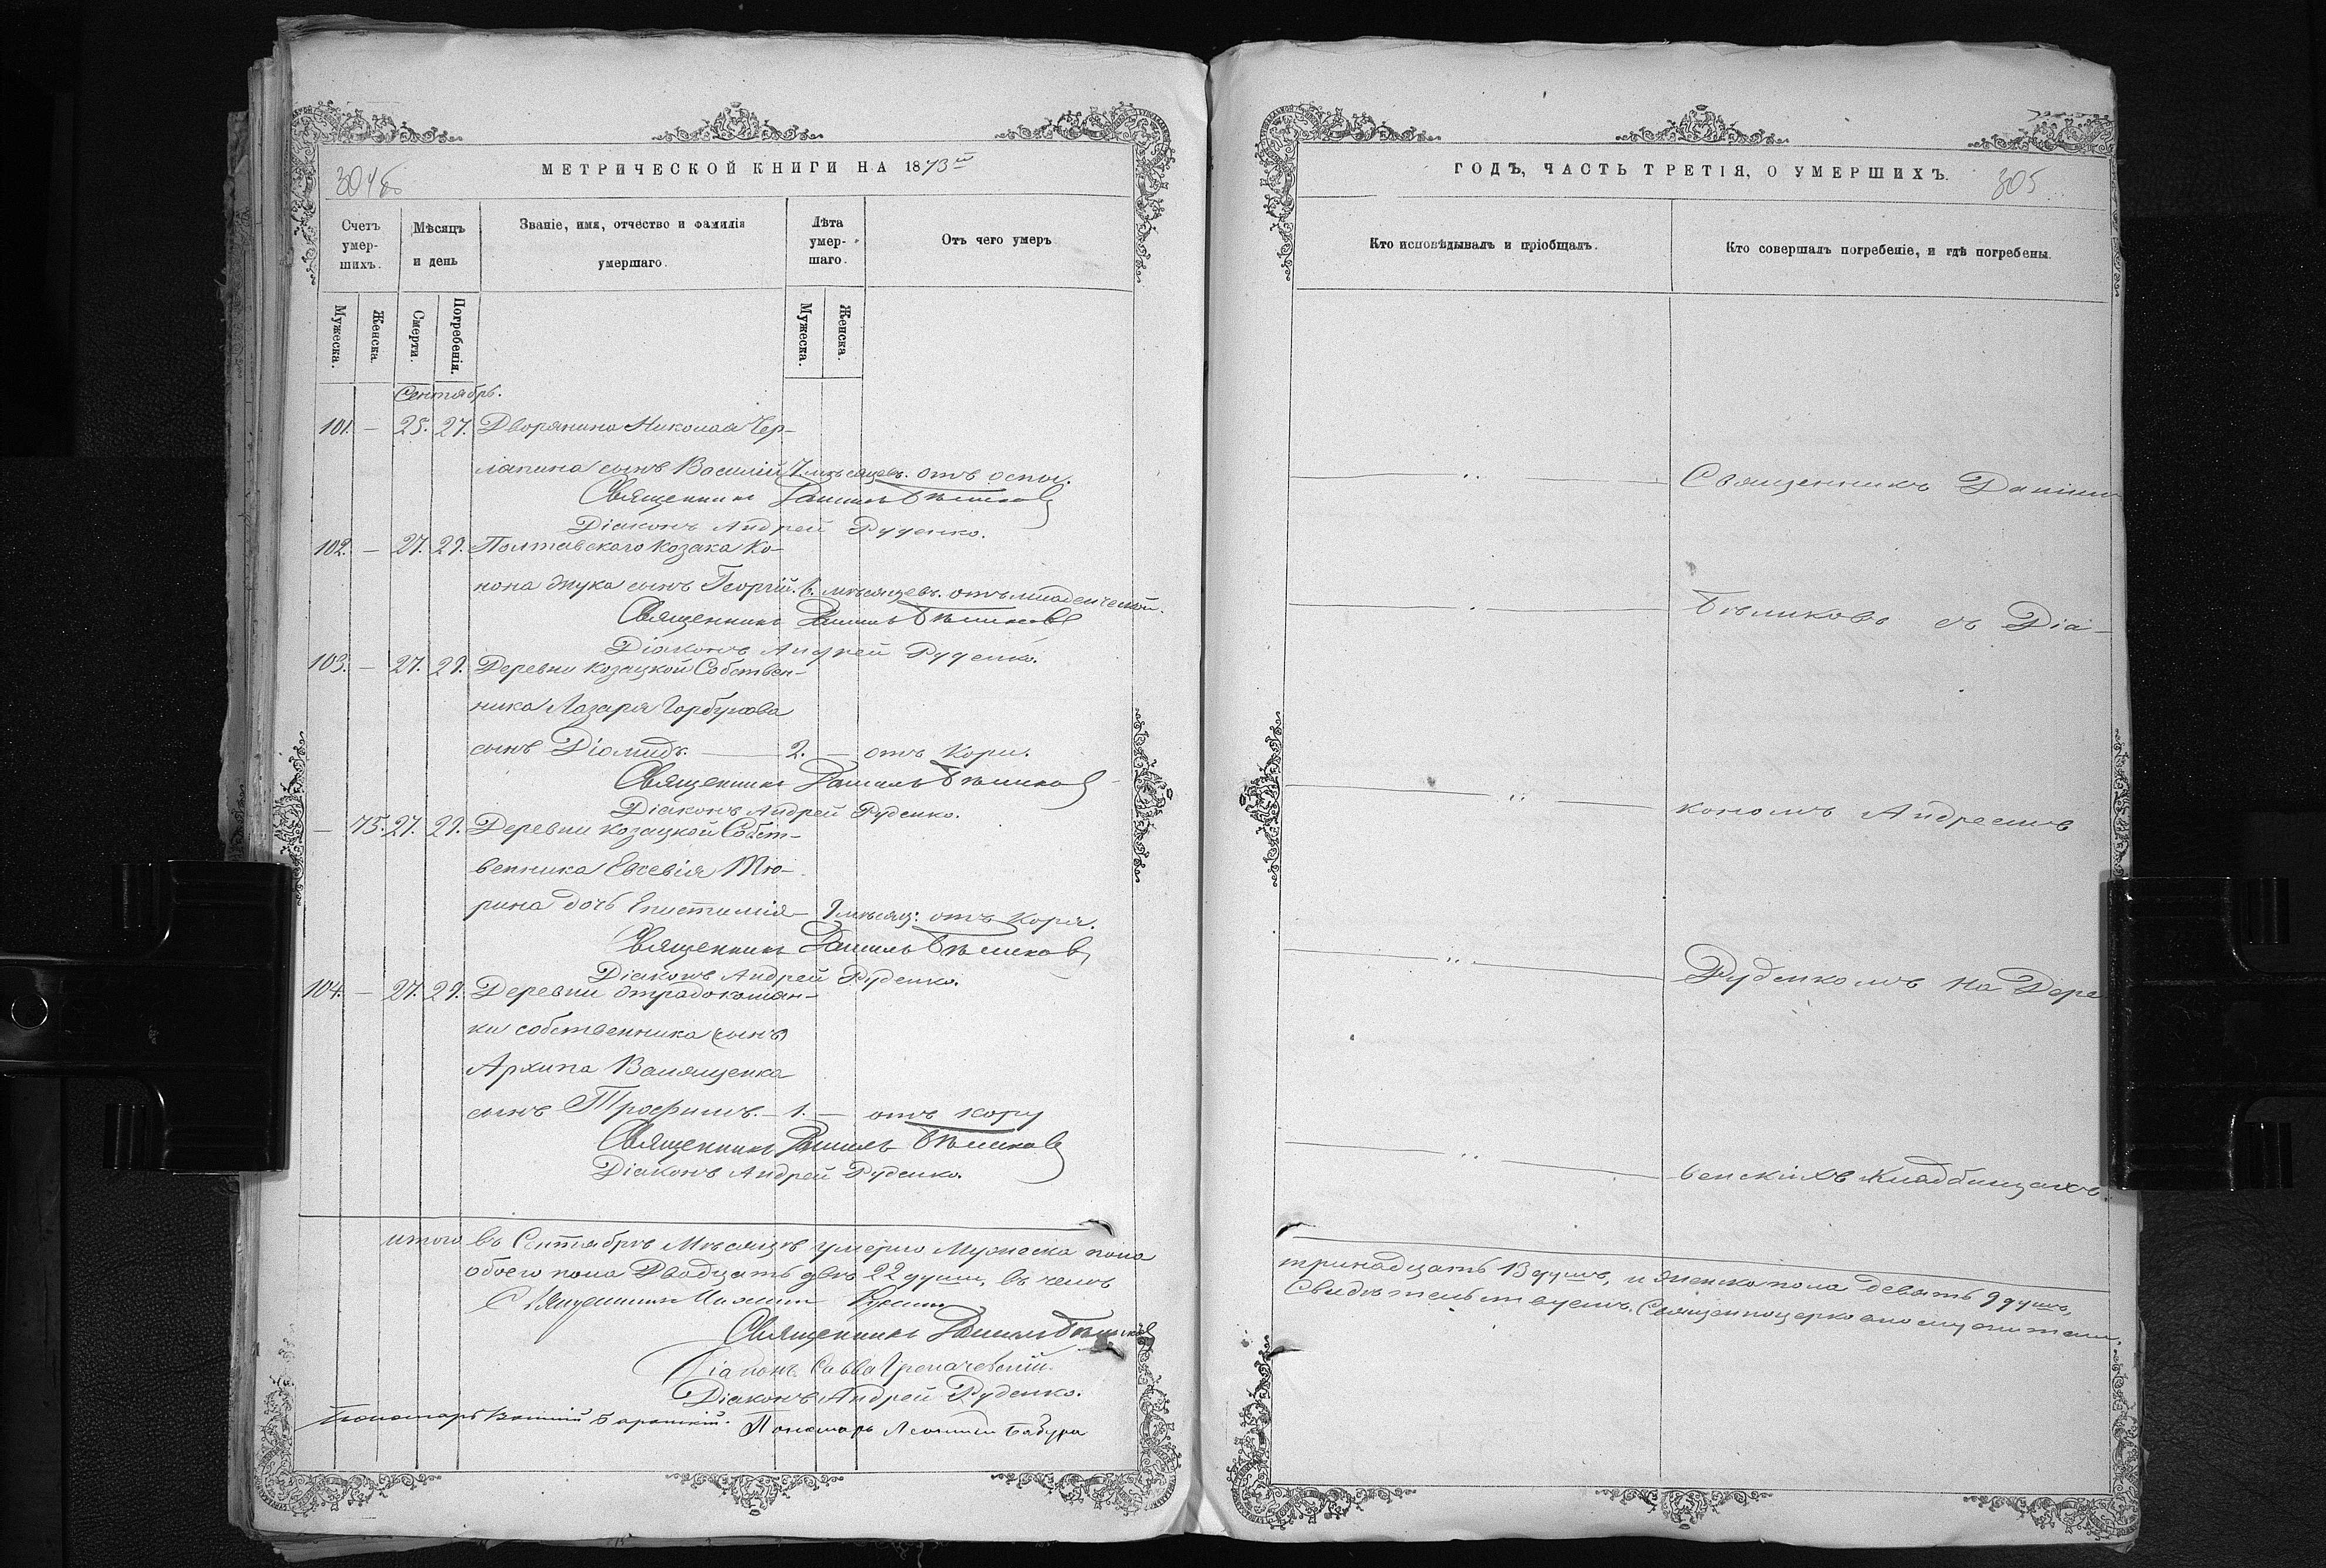 МЕТРИЧЕСКОЙ КНИГИ НА 1873й
304б
Счетъ умер-шихъ.
Мѣсяцъ и день
Званіе, имя, отчество и фамилія умершаго.
Лѣта умер-шаго.
Отъ чего умеръ
Мужеска.
Женска.
Смерти.
Погребенія.
Мужеска.
Женска.
Сентябрь.
101. — 25. 27. Дворянина Николая Чер-
лапина сынъ Василій 7. мѣсяцевъ. отъ оспы.
Священникъ Даніилъ Бѣликовъ
Діаконъ Андрей Руденко.
102. — 27. 29. Полтавскаго козака Ко-
нона Жука сынъ Георгій. 6. мѣсяцевъ. отъ младенческой.
Священникъ Даніилъ Бѣликовъ
Діаконъ Андрей Руденко.
103. — 27. 29. Деревни Козацкой Собствен-
ника Лазаря Горбунова
сынъ Діомидъ. — 2. — отъ Кори.
Священникъ Даніилъ Бѣликовъ
Діаконъ Андрей Руденко.
— 75. 27. 29. Деревни Козацкой Собст-
венника Евсевія Тю-
рина дочь Епистимія 9 мѣсяц: отъ Коря.
Священникъ Даніилъ Бѣликовъ
Діаконъ Андрей Руденко.
104. — 27. 29. Деревни Отрадокоман-
ки собственника (сынъ)
Архипа Ващенка
сынъ Трофимъ. — 1. — отъ кору
Священникъ Даніилъ Бѣликовъ
Діаконъ Андрей Руденко.
итого въ Сентябрѣ Мѣсяцѣ умерло Мужеска пола
обоего пола Двадцать двѣ 22 души, въ чемъ
Священникъ
Священникъ Даніилъ Бѣликовъ
Діаконъ Савва
Діаконъ Андрей Руденко.
Пономарь
Пономарь Леонтій Бабура
ГОДЪ, ЧАСТЬ ТРЕТІЯ, О УМЕРШИХЪ.
305
Кто исповѣдывалъ и пріобщалъ.
Кто совершалъ погребеніе, и гдѣ погребены.
Священникъ Даніилъ
Бѣликовъ съ Діа-
кономъ Андреемъ
Руденкомъ На Дере
венскихъ Кладбищахъ.
тринадцать 13 душъ, и женска пола девять 9 душъ,
Свидѣтельствуемъ. Священноцерковнослужители.